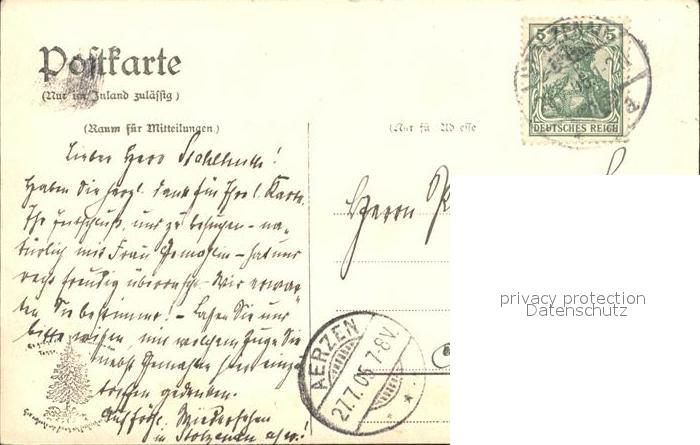 Postkarte
(Nur im Inland zulässig)
(Raum für Mitteilungen.)
Lieber Herr Stahlhuth!
Haben Sie herzl. Dank für Ihre l. Karte.
Ihr Entschluß, uns zu besuchen – na-
türlich mit Frau Gemahlin – hat uns
recht freudig überrascht. Wir erwar-
ten Sie bestimmt! – Lassen Sie uns
bitte wissen, mit welchem Zuge Sie
nebst Gemahlin hier einzu-
treffen gedenken.
Auf frohes Wiedersehen
in
(Nur für Adresse
5 5
DEUTSCHES REICH
Herrn
AERZEN
27.7.06 7-8V.
privacy protection
Datenschutz